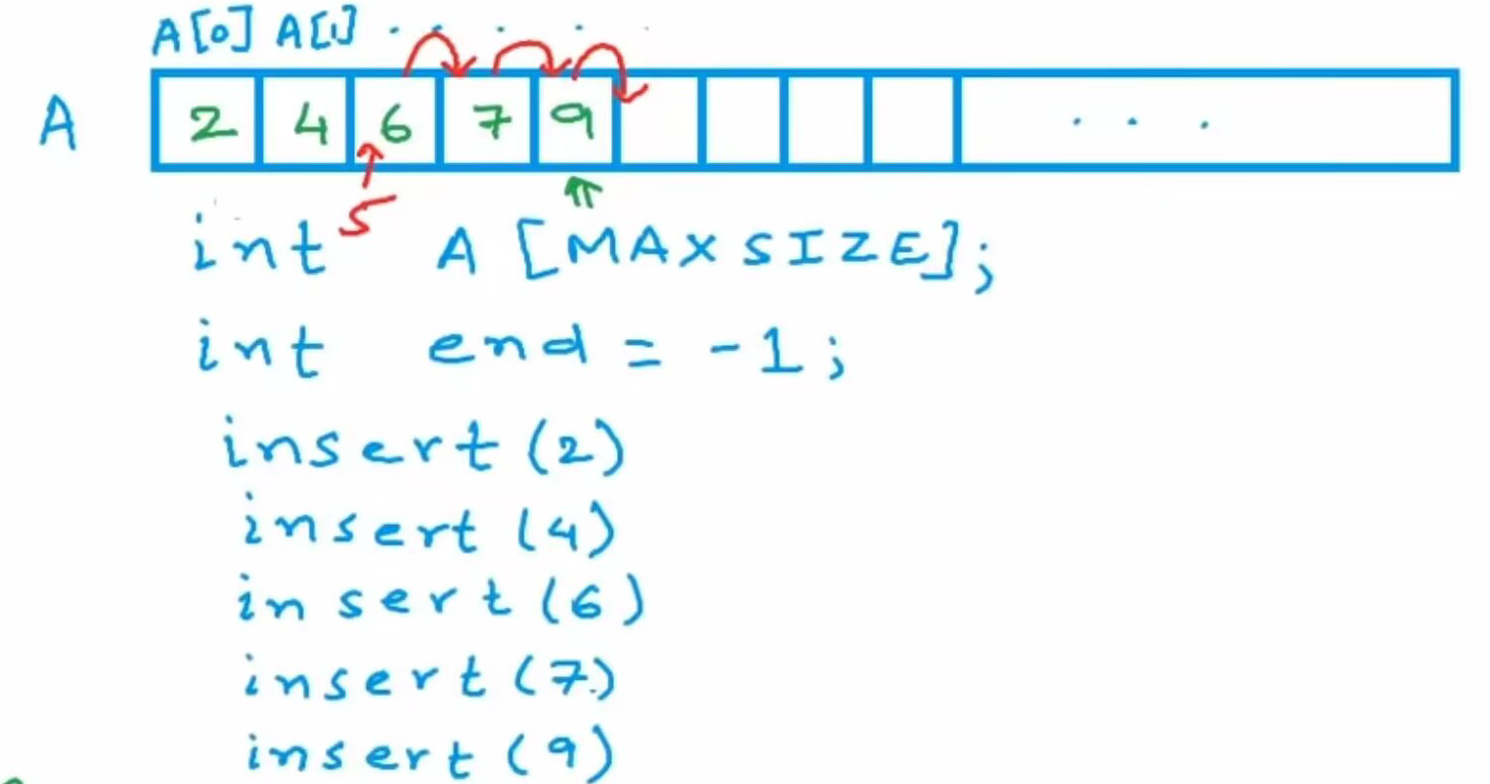 A[0] A[1] . . . . .
A 2 4 6 7 9 . . .
5
int A [MAXSIZE];
int end = -1;
insert (2)
insert (4)
insert (6)
insert (7)
insert (9)